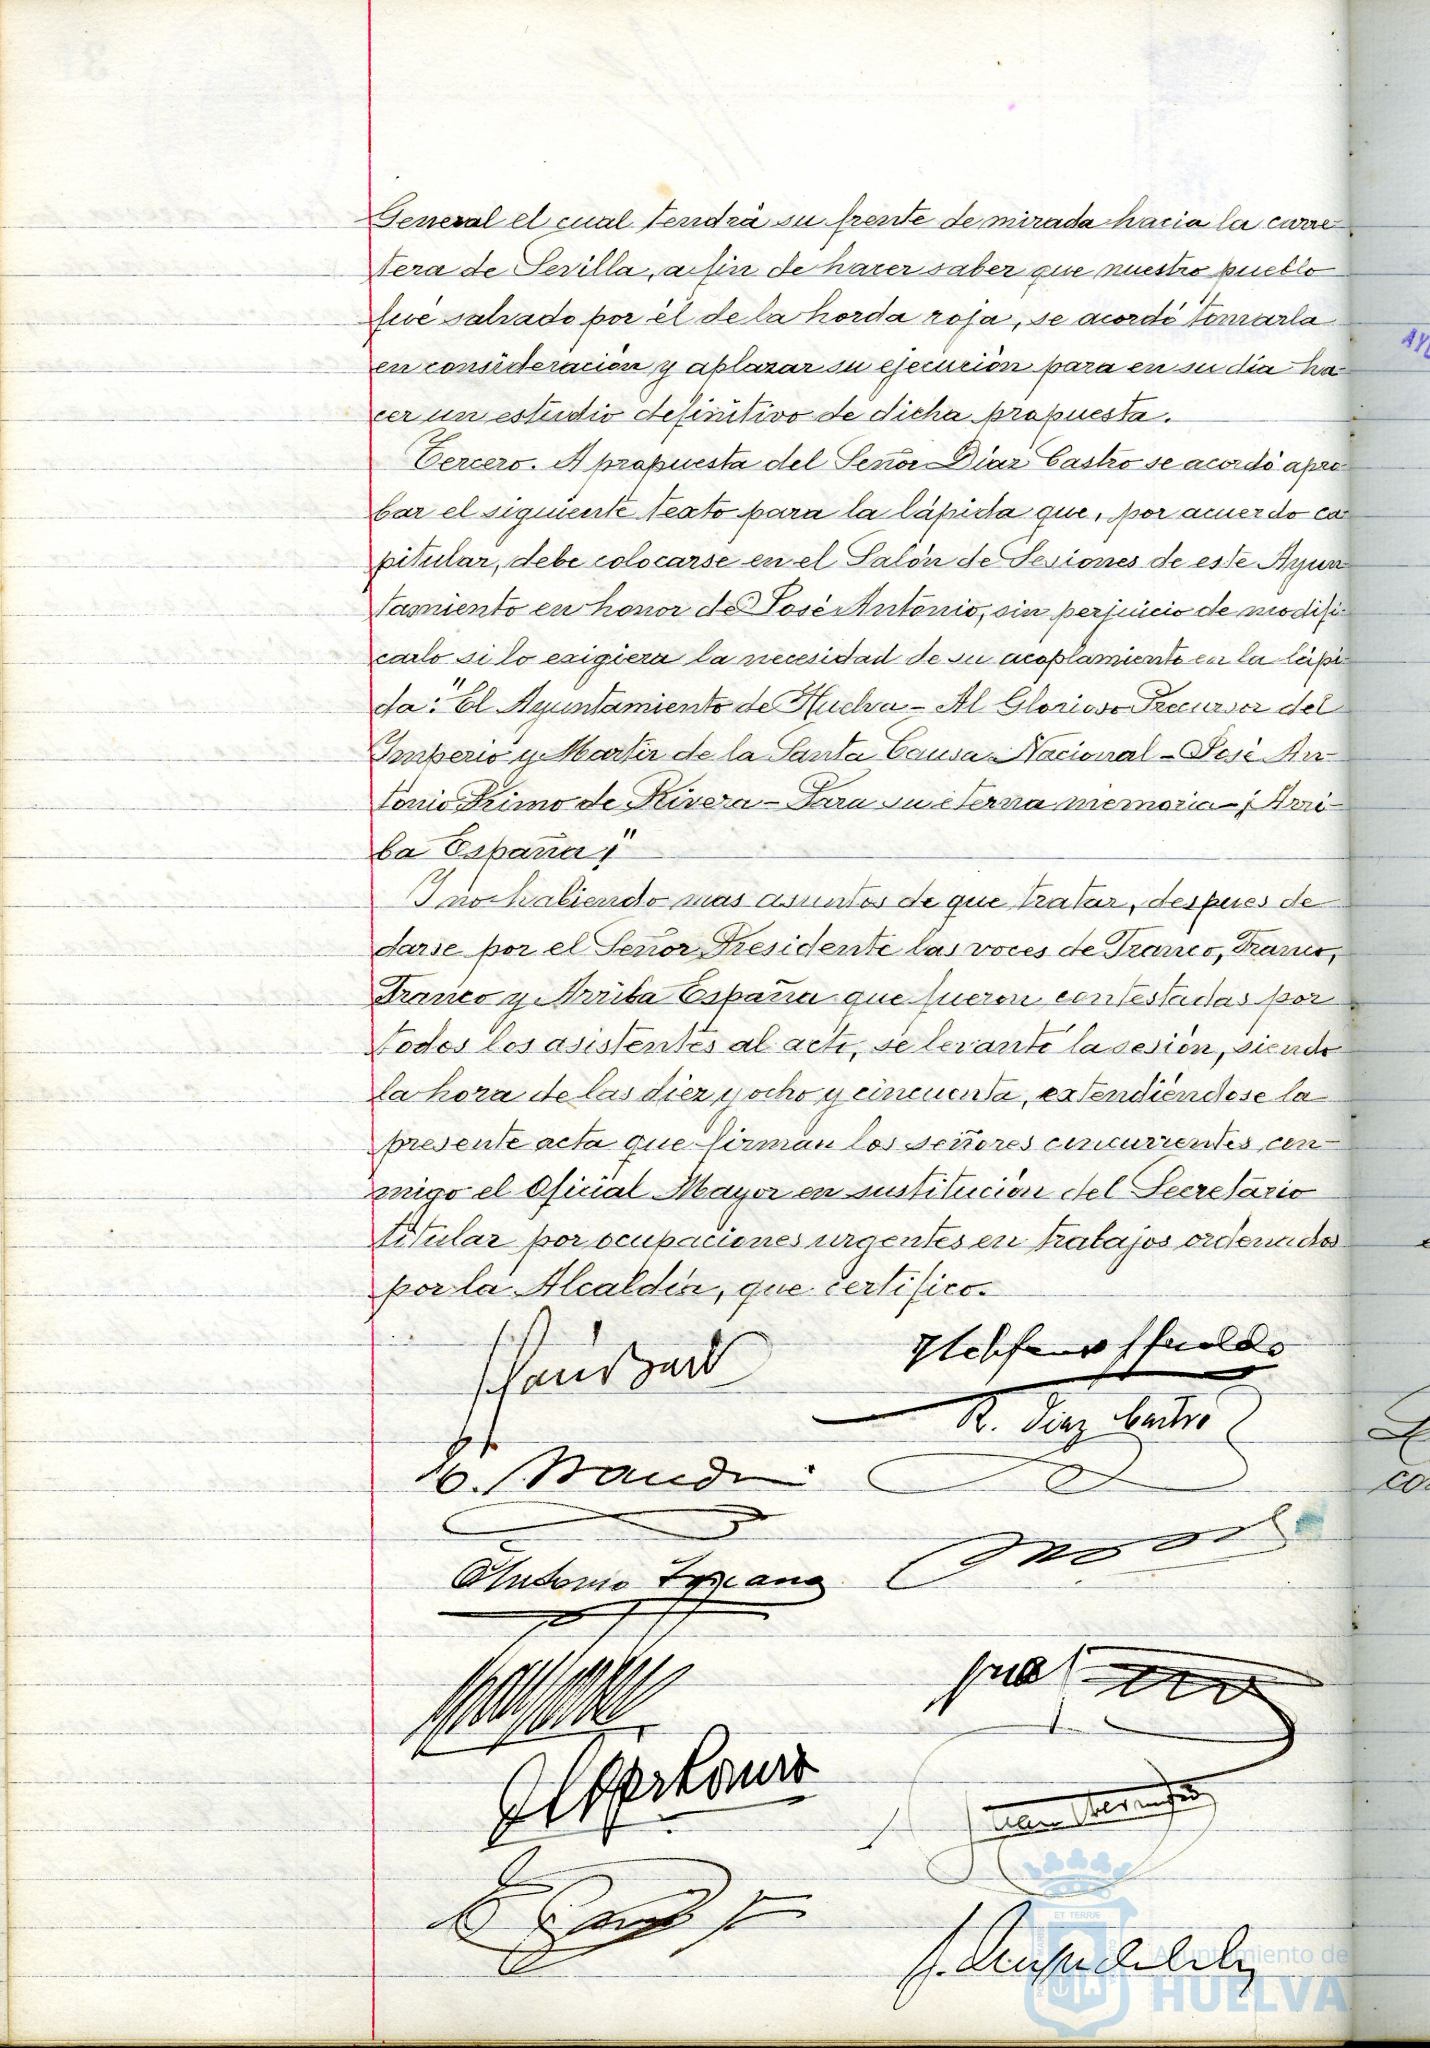 General el cual tendrá su frente de mirada hacia la carre-
tera de Sevilla, a fin de hacer saber que nuestro pueblo
fué salvado por él de la horda roja, se acordó tomarla
en consideración y aplazar su ejecución para en su dia ha-
cer un estudio definitivo de dicha propuesta.
Tercero. A propuesta del Señor Díaz Castro se acordó apro-
bar el siguiente texto para la lápida que, por acuerdo ca-
pitular, debe colocarse en el Salón de Sesiones de este Ayun-
tamiento en honor de José Antonio, sin perjuicio de modifi-
carlo si lo exigiera la necesidad de su acoplamiento en la lápi-
da: "El Ayuntamiento de Huelva - Al Glorioso Precursor del
Imperio y Martir de la Santa Causa Nacional - José An-
tonio Primo de Rivera - Para su eterna memoria - ¡Arri-
ba España!"
Y no habiendo mas asuntos de que tratar, despues de
darse por el Señor Presidente las voces de Franco, Franco,
Franco y Arriba España que fueron contestadas por
todos los asistentes al acto, se levantó la sesión, siendo
la hora de las diez y ocho y cincuenta, extendiéndose la
presente acta que firman los señores concurrentes, con-
migo el Oficial Mayor en sustitución del Secretario
titular por ocupaciones urgentes en trabajos ordenados
por la Alcaldía, que certifico.
R. Diaz Castro
Antonio Toscano
Ayuntamiento de
HUELVA